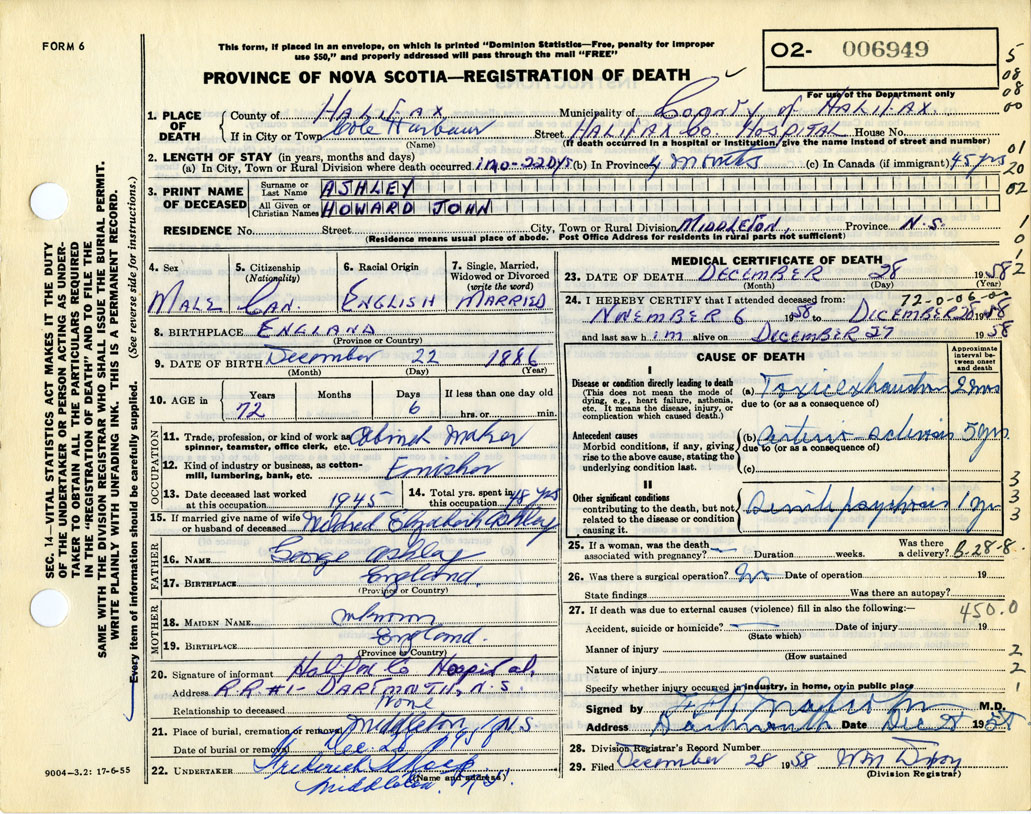 FORM 6
This form, if placed in an envelope, on which is printed "Dominion Statistics—Free, penalty for improper
use $50," and properly addressed will pass through the mail "FREE"
PROVINCE OF NOVA SCOTIA—REGISTRATION OF DEATH
02- 006949
For use of the Department only
5
08
08
00
01
20
02
1. PLACE OF DEATH
County of HALIFAX Municipality of County of HALIFAX.
If in City or Town Cole Harbour Street HALIFAX CO. HOSPITAL House No.
(Name) (If death occurred in a hospital or institution, give the name instead of street and number)
2. LENGTH OF STAY (in years, months and days)
(a) In City, Town or Rural Division where death occurred 1 mo-22 Dys (b) In Province 4 months (c) In Canada (if immigrant) 45 yrs
3. PRINT NAME OF DECEASED
Surname or Last Name ASHLEY
All Given or Christian Names HOWARD JOHN
RESIDENCE No. Street City, Town or Rural Division MIDDLETON, Province N.S.
(Residence means usual place of abode. Post Office Address for residents in rural parts not sufficient)
SEC. 14—VITAL STATISTICS ACT MAKES IT THE DUTY
OF THE UNDERTAKER OR PERSON ACTING AS UNDER-
TAKER TO OBTAIN ALL THE PARTICULARS REQUIRED
IN THE "REGISTRATION OF DEATH" AND TO FILE THE
SAME WITH THE DIVISION REGISTRAR WHO SHALL ISSUE THE BURIAL PERMIT.
WRITE PLAINLY WITH UNFADING INK. THIS IS A PERMANENT RECORD.
Every item of information should be carefully supplied. (See reverse side for instructions.)
4. Sex 5. Citizenship 6. Racial Origin 7. Single, Married,
(Nationality) Widowed or Divorced
(write the word)
MALE CAN. ENGLISH MARRIED
8. BIRTHPLACE ENGLAND
(Province or Country)
9. DATE OF BIRTH December 22 1886
(Month) (Day) (Year)
10. AGE in Years Months Days If less than one day old
72 6 hrs. or min.
OCCUPATION
11. Trade, profession, or kind of work as Cabinet Maker
spinner, teamster, office clerk, etc.
12. Kind of industry or business, as cotton-
mill, lumbering, bank, etc.
13. Date deceased last worked at this occupation 1945 14. Total yrs. spent in this occupation 48 yrs
15. If married give name of wife or husband of deceased Mildred Elizabeth Ashley
FATHER
16. NAME George Ashley
17. BIRTHPLACE England.
(Province or Country)
MOTHER
18. MAIDEN NAME unknown
19. BIRTHPLACE England.
(Province or Country)
20. Signature of informant Halifax Co Hospital,
Address R.R.#1- DARTMOUTH, N.S.
Relationship to deceased None
21. Place of burial, cremation or removal Middleton, N.S.
Date of burial or removal Dec.
22. UNDERTAKER Frederick
(Name and address)
Middleton N.S.
9004—3.2: 17-6-55
MEDICAL CERTIFICATE OF DEATH
23. DATE OF DEATH DECEMBER 28 1958
(Month) (Day) (Year)
24. I HEREBY CERTIFY that I attended deceased from: 72-0-06-00
NOVEMBER 6 1958 to DECEMBER 28 1958
and last saw him alive on DECEMBER 27 1958
CAUSE OF DEATH
Approximate interval between onset and death
I
Disease or condition directly leading to death
(This does not mean the mode of
dying, e.g., heart failure, asthenia,
etc. It means the disease, injury, or
complication which caused death.)
(a) Toxic exhaustion 2 mos
due to (or as a consequence of)
Antecedent causes
Morbid conditions, if any, giving
rise to the above cause, stating the
underlying condition last.
(b) Arterio-sclerosis 5 yrs
due to (or as a consequence of)
(c)
II
Other significant conditions
contributing to the death, but not
related to the disease or condition
causing it.
Senile psychosis 1 yr
3
3
3
25. If a woman, was the death Was there
associated with pregnancy? Duration weeks. a delivery? B-28-8
26. Was there a surgical operation? No Date of operation 19
State findings Was there an autopsy?
27. If death was due to external causes (violence) fill in also the following:— 450.0
Accident, suicide or homicide? Date of injury 19
(State which)
Manner of injury 2
(How sustained
Nature of injury 2
Specify whether injury occurred in industry, in home, or in public place 1
Signed by M.D.
Address Dartmouth Date Dec 28 1958
28. Division Registrar's Record Number
29. Filed December 28 1958
(Division Registrar)